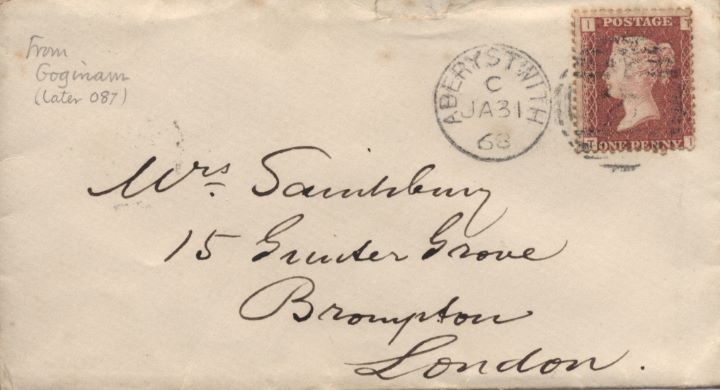 From
Goginam
(later 087)
ABERYSTWITH
C
JA31
68
I
POSTAGE
ONE PENNY
I
Mrs Saintsbury
15 Gunter Grove
Brompton
London.